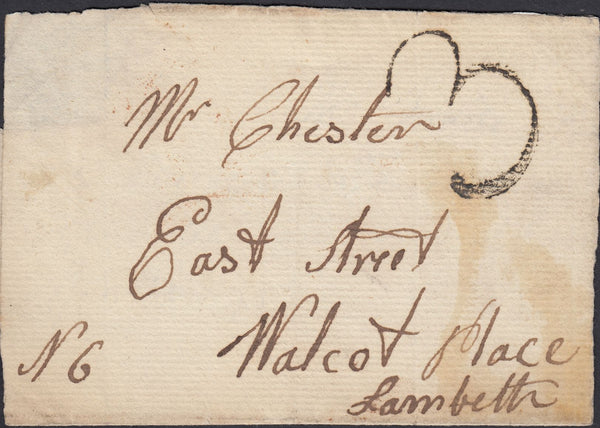 3
Mr Chester
East Street
N 6 Walcot Place
Lambeth